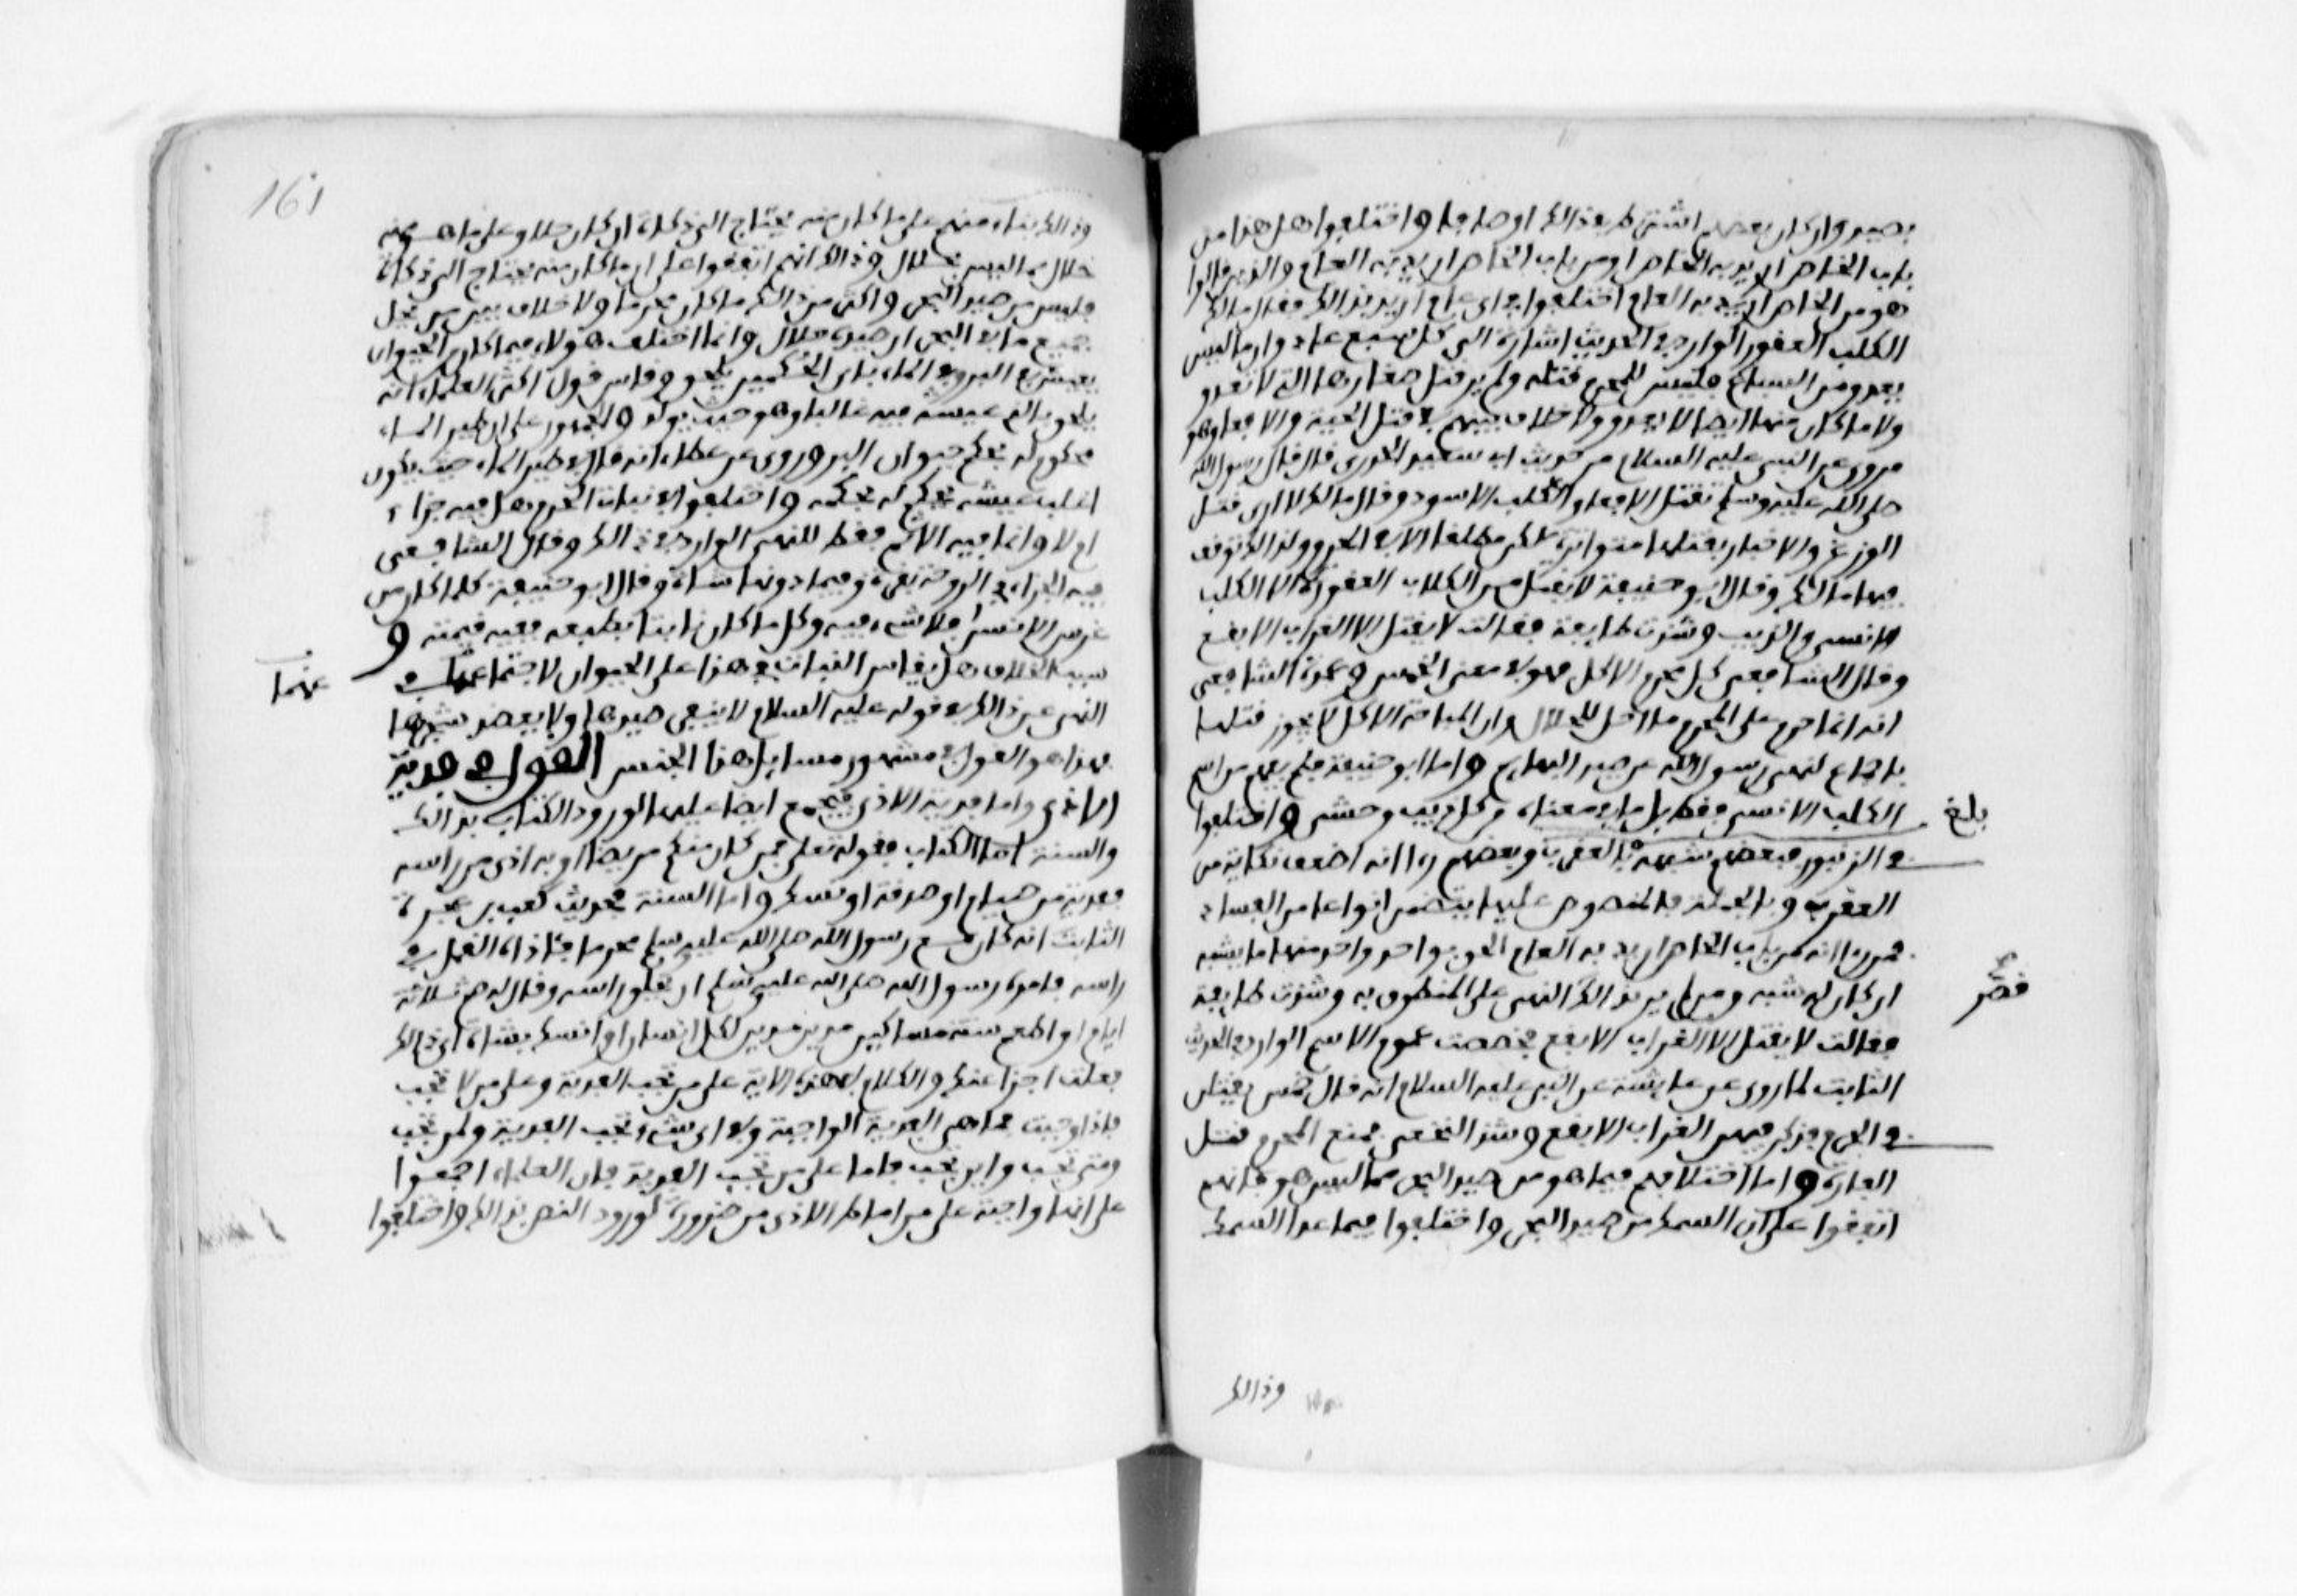 بصيد وان كان بعضهم اشترط في ذالك اوصافا واختلفوا هل هذا من
باب الخاص اريد به الخاص او من باب الخاص اريد به العام والذين قالوا
هو من الخاص اريد به العام اختلفوا في اي عام اريد بذالك فقال مالك
الكلب العقور الوارد في الحديث اشارة الى كل سبع عاد وان ما ليس
يعدو من السباع فليس للمحرم قتله ولم ير قتل صغارها التي لا تعدو
ولا ما كان منها ايضا لا يعدو ولا خلاف بينهم في قتل الحية والافعا وهو
مروي عن النبي عليه السلام من حديث ابي سعيد الخدري قال قال رسول الله
صلى الله عليه وسلم تقتل الافعا والكلب الاسود وقال مالك لا ارى قتل
الوزغ والاخبار بقتلها متواترة لكن مطلقا لا في الحرم ولذالك توقف
فيها مالك وقال ابو حنيفة لا يقتل من الكلاب العقورة الا الكلب
الانسي والذيب وشذت طايفة فقالت لا يقتل الا الغراب الابقع
وقال الشافعي كل محرم الاكل فهو في معنى الخمس وعمدة الشافعي
انه انما حرم على المحرم ما احل للحلال وان المباحة الاكل لا يجوز قتلها
باجماع لنهي رسول الله عن صيد البهايم واما ابو حنيفة فلم يفهم من اسم
الكلب الانسي فقط بل ما في معناه من كل ذيب وحشي واختلفوا
بلغ
في الزنبور فبعضهم شبهه بالعقرب وبعضهم راا انه اضعف نكاية من
العقرب وبالجملة فالمنصوص عليها يتضمن انواعا من الفساد
فمن راا انه من باب الخاص اريد به العام الحق بواحد واحد منها ما يشبه
ان كان له شبه ومن لم ير ذالك النهي على المنطوق به وشذت طايفة
فقالت لا يقتل الا الغراب الابقع فخصصت عموم الاسم الوارد في الحديث
الثابت لما روي عن عايشة عن النبي عليه السلام انه قال خمس يقتلن
في الحرم فذكر فيهن الغراب الابقع وشذ النخعي فمنع المحرم قتل
الفارة واما اختلافهم فيما هو من صيد البحر مما ليس هو فانهم
اتفقوا على ان السمك من صيد البحر واختلفوا فيما عدا السمك
وذالك
161
وذالك بناء منهم على ما كان منه يحتاج الى ذكاة
خلال مما ليس بحلال وذالك انهم اتفقوا على ان ما كان منه يحتاج الى ذكاة
فليس من صيد البحر واكثر من ذالك ما كان محرما ولا خلاف بين من يحل
جميع ما في البحر ان صيده حلال وانما اختلف هولاء فيما كان من الحيوان
يعيش في البر وفي الماء باي الحكمين يلحق وقياس قول اكثر العلماء انه
يلحق بالذي عيشه فيه غالبا وهو حيث يولد والجمهور على ان طير الماء
محكوم له بحكم حيوان البر وروي عن عطاء انه قال في طير الماء حيث يكون
اغلب عيشه يحكم له بحكمه واختلفوا في نبات الحرم هل فيه جزاء
ام لا وانما فيه الاثم فقط للنهي الوارد في ذالك وقال الشافعي
فيه الجزاء في الدوحة بقرة وفيما دونها شاة وقال ابو حنيفة كل ما كان من
غرس الانسان فلا شيء فيه وكل ما كان نابتا بطبعه ففيه قيمته و
سبب الخلاف هل يقاس النبات في هذا على الحيوان لاجتماعهما في
عنهما
النهي عن ذالك في قوله عليه السلام لا ينفر صيدها ولا يعضد شجرها
فهذا هو القول في مشهور مسايل هذا الجنس القول في فدية
الاذى واما فدية الاذى فمجمع ايضا عليها لورود الكتاب بذالك
والسنة اما الكتاب فقوله تعلى فمن كان منكم مريضا او به اذى من راسه
ففدية من صيام او صدقة او نسك واما السنة فحديث كعب بن عجرة
الثابت انه كان مع رسول الله صلى الله عليه وسلم محرما فئاذاه القمل في
راسه فامره رسول الله صلى الله عليه وسلم ان يحلق راسه وقال له صم ثلاثة
ايام او اطعم ستة مساكين مدين مدين لكل انسان او انسك بشاة اي ذالك
فعلت اجزا عنك والكلام في هذه الاية على من تجب الفدية وعلى من لا تجب
فاذا وجبت فما هي الفدية الواجبة وفي اي شيء تجب الفدية ولمن تجب
ومتى تجب واين تجب فاما على من تجب الفدية فان العلماء اجمعوا
على انها واجبة على من اماط الاذى من ضرورة لورود النص بذالك واختلفوا